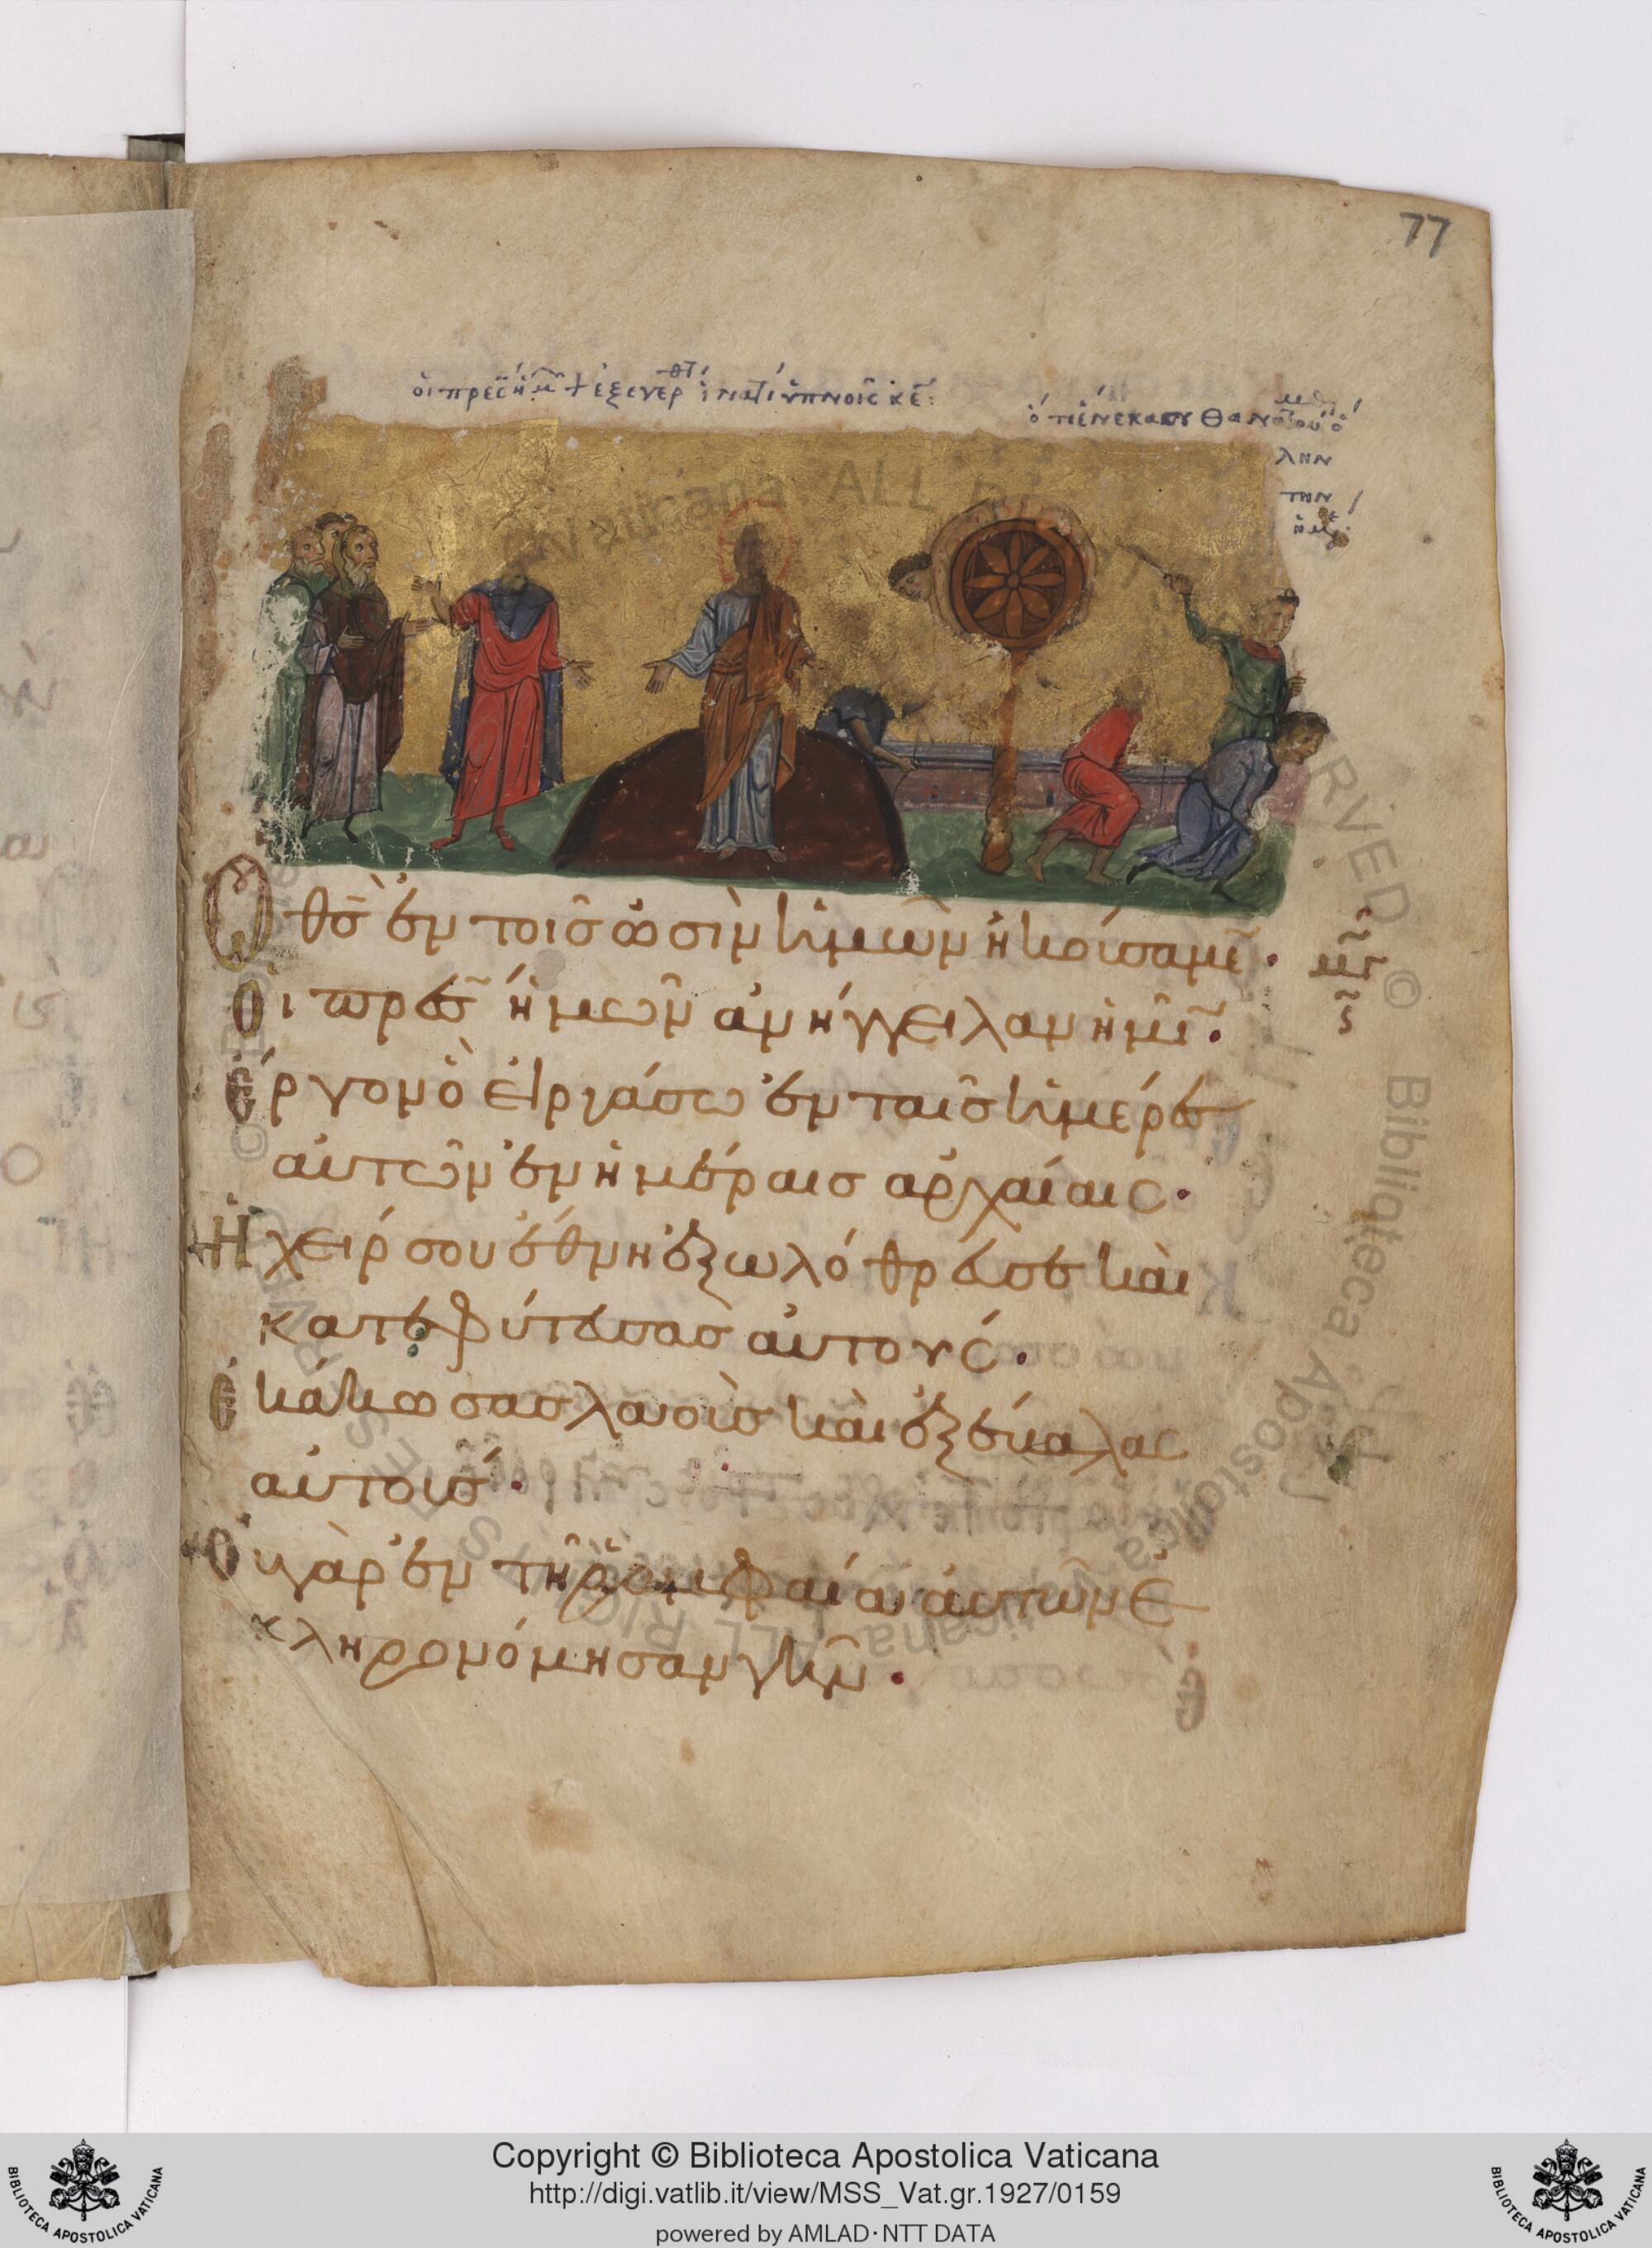 77
οἱ πρεσ ἡμ + ἐξεγερθτι ἱνατί ὑπνοῖς κε:
ὅτι ἕνεκα σου θανατουμεθ ὅ
λην
την
ἡμε
Ὁ θσ ἐν τοῖσ ὠσὶν ἡμῶν ἠκούσαμε·
Οἱ πρεσ ἡμῶν ἀνήγγειλαν ἡμῖ·
Ἔργον ὃ εἰργάσω ἐν ταῖσ ἡμέραισ
αὐτῶν ἐν ἡμέραισ ἀρχαίαις·
Ἡ χείρ σου ἔθνη ἐξωλόθρευσε καὶ
κατεφύτευσασ αὐτούς·
Ἐκάκωσασ λαοὺσ καὶ ἐξέβαλας
αὐτούσ·
Οὐ γὰρ ἐν τῇ ῥομφαίαι αὐτῶν ἐ
κληρονόμησαν γῆν·
Copyright © Biblioteca Apostolica Vaticana
http://digi.vatlib.it/view/MSS_Vat.gr.1927/0159
powered by AMLAD·NTT DATA
BIBLIOTECA APOSTOLICA VATICANA
BIBLIOTECA APOSTOLICA VATICANA